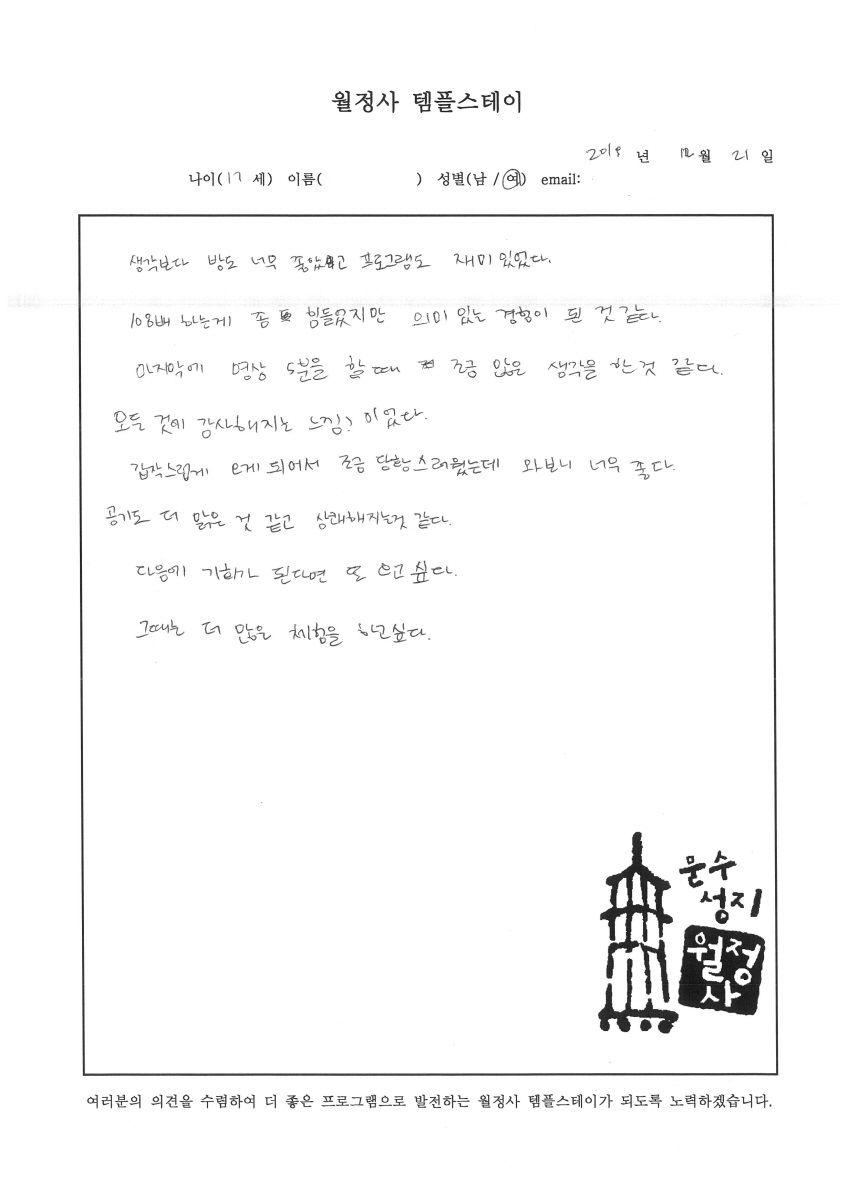 월정사 템플스테이
2019 년 12 월 21 일
나이(17 세) 이름( ) 성별(남 / 여) email:
생각보다 방도 너무 좋았고 프로그램도 재미있었다.
108배 하는게 좀 힘들었지만 의미 있는 경험이 된 것 같다.
마지막에 명상 5분을 할 때 조금 많은 생각을 한 것 같다.
모든 것에 감사해지는 느낌? 이었다.
갑작스럽게 오게 되어서 조금 당황스러웠는데 와보니 너무 좋다.
공기도 더 맑은 것 같고 상쾌해지는것 같다.
다음에 기회가 된다면 또 오고 싶다.
그때는 더 많은 체험을 하고싶다.
문수
성지
월정
사
여러분의 의견을 수렴하여 더 좋은 프로그램으로 발전하는 월정사 템플스테이가 되도록 노력하겠습니다.